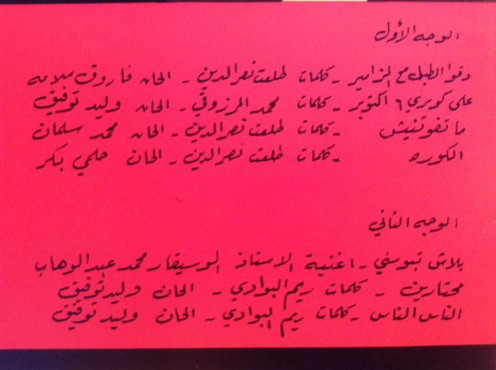 الوجه الأول
دقوا الطبل مع المزامير - كلمات طلعت نصرالدين - الحان فاروق سلامه
على كوبري ٦ اكتوبر - كلمات محمد المرزوقي - الحان وليد توفيق
ما تفوتنيش - كلمات طلعت نصرالدين - الحان محمد سلمان
الكوره - كلمات طلعت نصرالدين - الحان حلمي بكر
الوجه الثاني
بلاش تبوسني - اغنية الاستاذ الموسيقار محمد عبدالوهاب
محتارين - كلمات ريم البوادي - الحان وليد توفيق
الناس الناس - كلمات ريم البوادي - الحان وليد توفيق